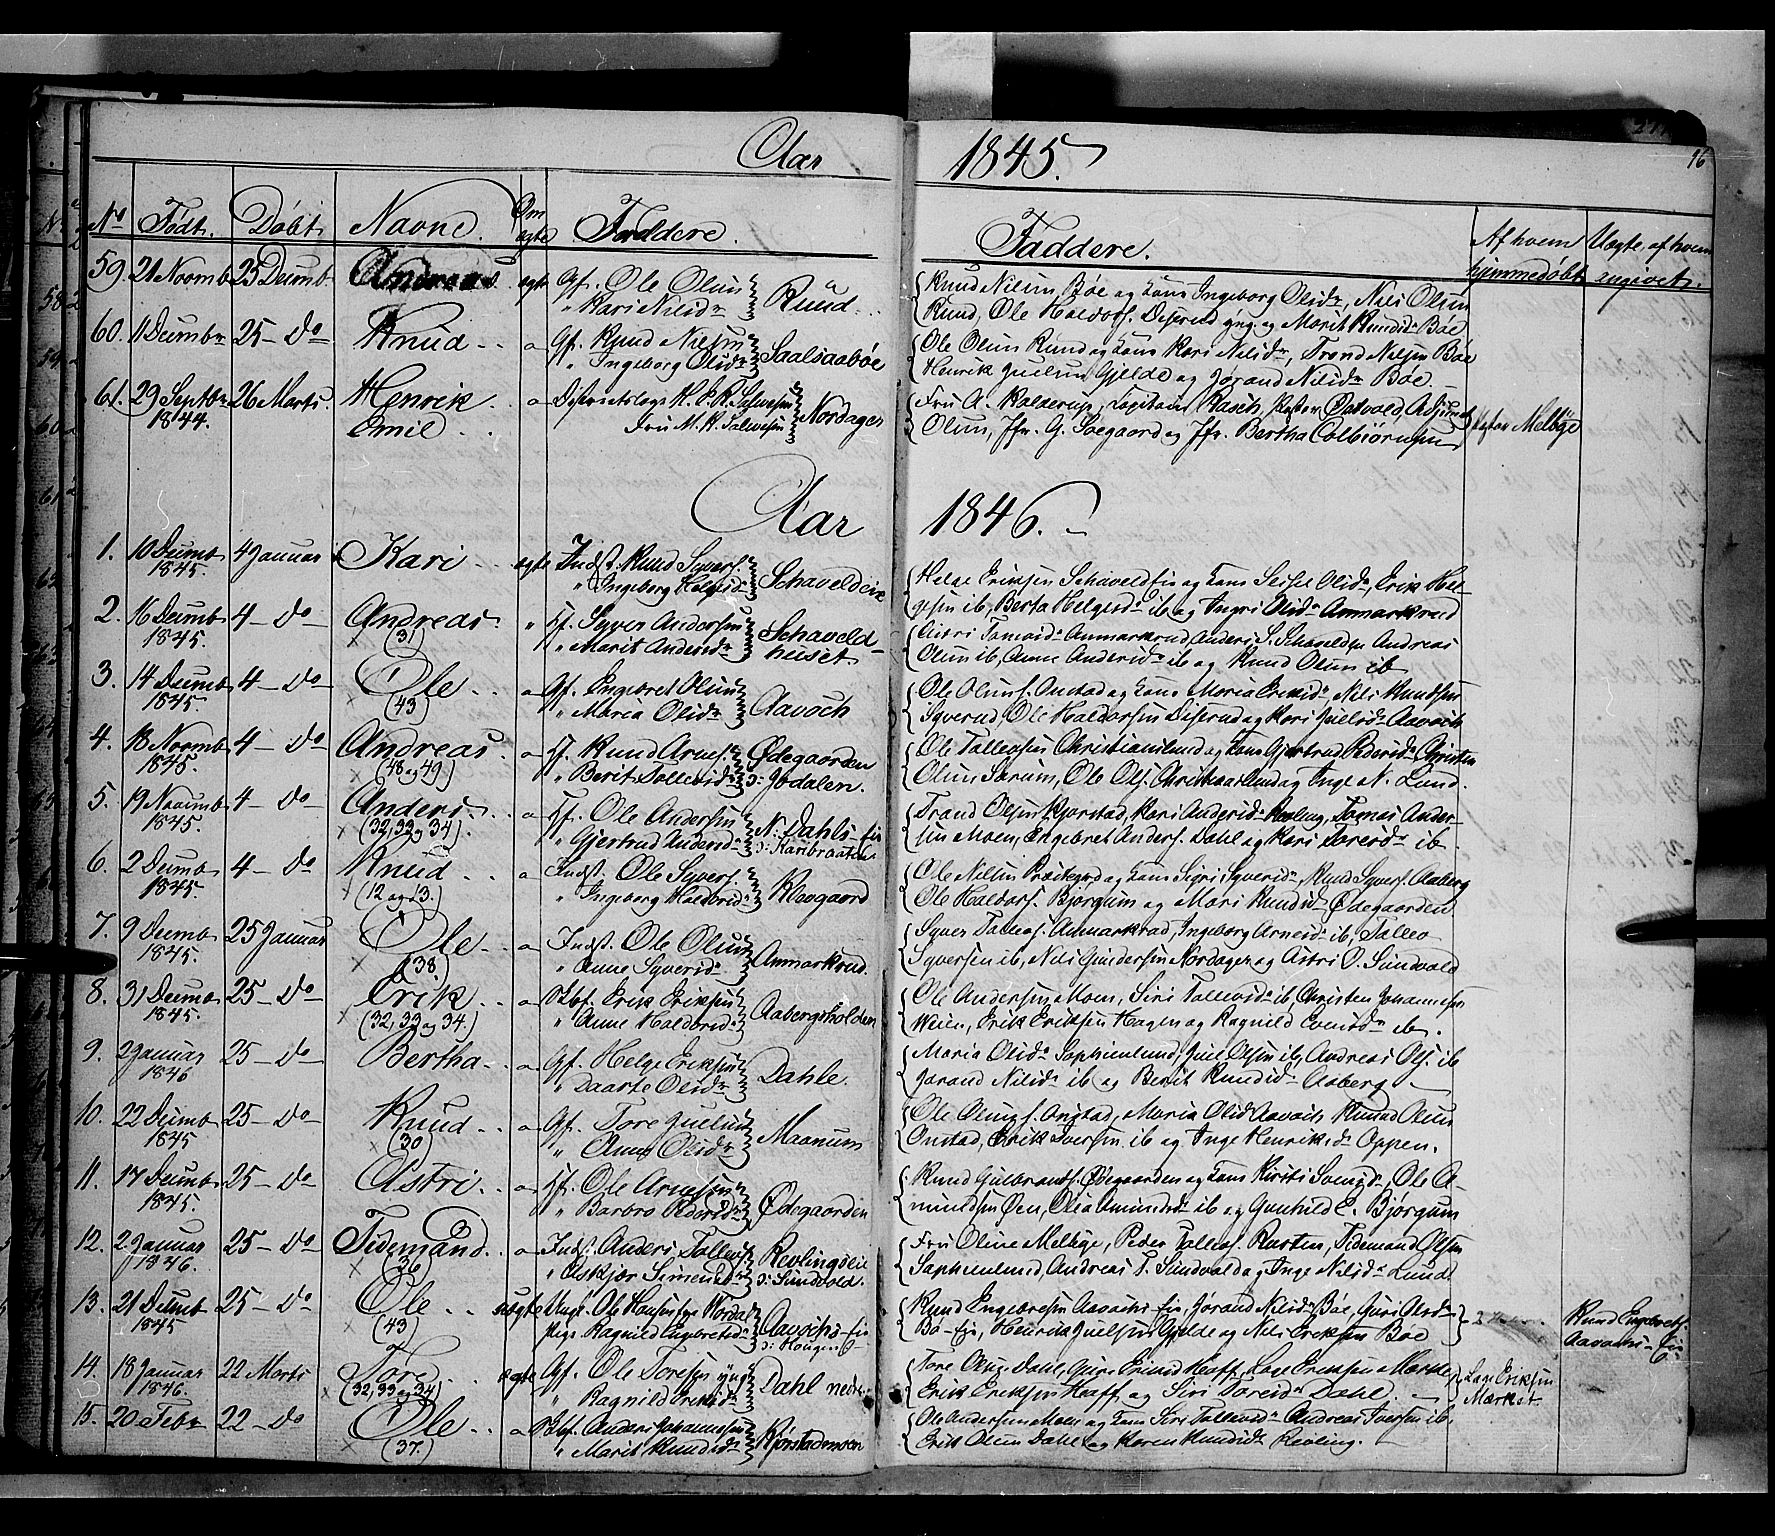 Aar 1845.
96
No Født. Døbt Navne. Om ægte Faddere. Faddere. Af hvem hjemmedøbt Uægte, af hvem angivet.
59. 21 Novemb 25 Decemb. Andrea ægte Gf. Ole Olsen
" Kari Nilsdr Ruud
Knud Nilsen Bøe og Kone Ingeborg Olsdr, Nils Olsen
Ruud, Ole Haldors. Diserud yng. og Marit Knudsdr Bøe
60. 11 Decembr 25 - Do Knud - Gf. Knud Nilsen
" Ingeborg Olsdr Saalsaabøe
Ole Olsen Ruud og Kone Kari Nilsdr, Trond Nilsen Bøe
Henrik Juelsen Gjelde og Jørand Nilsdr Bøe.
61. 29 Septbr 1844. 26 Marts. Henrik Emil Districtslæge
Fru M. K. Salvesen Nordagen
Fru A. Kalderup, Capitain Rasch, Pastor Ostvold,
Olsen, Jfr. G. Soegaard og Jfr. Bertha Colbiørnsen
Pastor Melbye
Aar 1846.
1. 10 Decemb 1845. 4 Januar Kari ægte Indst. Knud Syvers.
" Ingeborg Helgesdr
Helge Eriksen og Kone Sissel Olsdr, Erik Hel-
gesen ib, Berta Helgesdr ib og Ingri Olsdr Anmarkrud
2. 16 Decemb 1845. 4 - Do Andreas. (31) " Hf. Syver Andersen
" Marit Andersdr
Astri Tomasdr Anmarkrud, Anders S. Andreas
Olsen ib, Anne Andersdr ib og Knud Olsen ib
3. 14 Decemb 1845. 4 - Do Ole (43) Gf. Engebret Olsen
" Maria Olsdr Aavoch
Ole Olsen s. Onstad og Kone Maria Nils Knudsen
Syverud, Ole Haldorsen Diserud og Kari Juelsdr Aavoch
4. 18 Novemb 1845. 4 - Do Andreas. (48 og 49) Hf. Knud Arnes.
" Berit Tollevsdr Ødegaarden
: Jodalen.
Ole Tollevsen Christianslund og Kone Gjertrud Pedersdr, Christen
Olsen Sørum, Ole Ols. og Inge N. Lund.
5. 19 Novemb 1845. 4 - Do Anders. (32, 33 og 34). Hf. Ole Andersen
" Gjertrud Andersdr N. Dahls-
: Karibraaten
Trond Olsen Kjørstad, Kari Andersdr Tomas Ander-
sen Moen, Engebret Anders. Dahl og Kari Toresdr ib
6. 2 Decemb 1845. 4 - Do Knud (12 og 13.) Indst. Ole Syvers.
" Ingeborg Haldorsdr
Ole Nilsen og Kone Sigri Syversdr, Knud Syvers. Aaberg
Ole Haldors. Bjørgum og Mari Knudsdr Ødegaarden
7. 9 Decemb 1845. 25 Januar Ole (38.) Indst. Ole Olsen
" Anne Syversdr Anmarkrud.
Syver Tollevs. Anmarkrud, Ingeborg Arnesdr ib, Tollev
Syversen ib, Nils Gundersen Nordagen og Astri O. Sundvold
8. 31 Decemb 1845. 25 - Do Erik (32, 33 og 34.) Erik Eriksen
" Anne Haldorsdr Aabergsholden
Ole Andersen Moen, Siri Tollevsdr ib, Christen Johannesen
Weien, Erik Eriksen Hagen og Ragnild Evensdr ib.
9. 2 Januar 1846 25 - Do Bertha Gf. Helge Eriksen
" Daarte Olsdr Dahle.
Maria Olsdr Sophienlund, Juel Olsen ib, Andreas Ols. ib
Jørand Nilsdr ib og Berit Knudsdr Aaberg
10. 22 Decemb 1845 25 - Do Knud (30) Gf. Tore Juelsen
" Anne Olsdr Maanum
Ole Olsen s. Onstad, Maria Olsdr Aavoch, Knud Olsen
Onstad, Erik Iversen ib og Inge Henriksdr Oppen.
11. 17 Decemb 1845. 25 - Do Astri Hf. Ole Arnesen
" Barbro Pedersdr Ødegaarden
Knud Gulbrands. Ødegaarden og Kone Kirsti Svensdr, Ole A-
mundsen Øen, Olea Amundsdr ib og Gunhild E. Bjørgum
12. 2 Januar 1846. 25 - Do Tidemand (36) Indst. Anders Tollevs.
" Askjør Simensdr
: Sundvold.
Fru Oline Melbye, Peder Tollevs. Rusten, Tidemand Olsen
Sophienlund, Andreas T. Sundvold og Inge Nilsdr Lund.
13. 21 Decemb 1845 25 - Do Ole (43) uægte Ungk. Ole Hansen
Pige Ragnild Engebretsdr Aavochs-
: Haugen
Knud Engebretsen Aavochs-eie, Jørand Nilsdr Bøe, Guri Olsdr
Bø-eie, Henrik Juelsen Gjelde og Nils Eriksen Bøe
Knud Engebrets.
Aavochs-eie
14. 18 Januar 1846. 22 Marts Tore (32, 33 og 34) ægte Gf. Ole Toresen yng
" Ragnild Eriksdr Dahl nedre
Tore Olsen Dahl, Lage Eriksen
Erik Eriksen Haff og Siri Toresdr Dahl.
Lage Eriksen
15. 20 Febr 22 - Do Ole (37.) Anders Johannesen
" Marit Knudsdr Kjørstadmoen
Ole Andersen Moen og Kone Siri Tollevsdr Andreas Iversen ib,
Erik Olsen Dahl og Karen Knudsdr Revling.